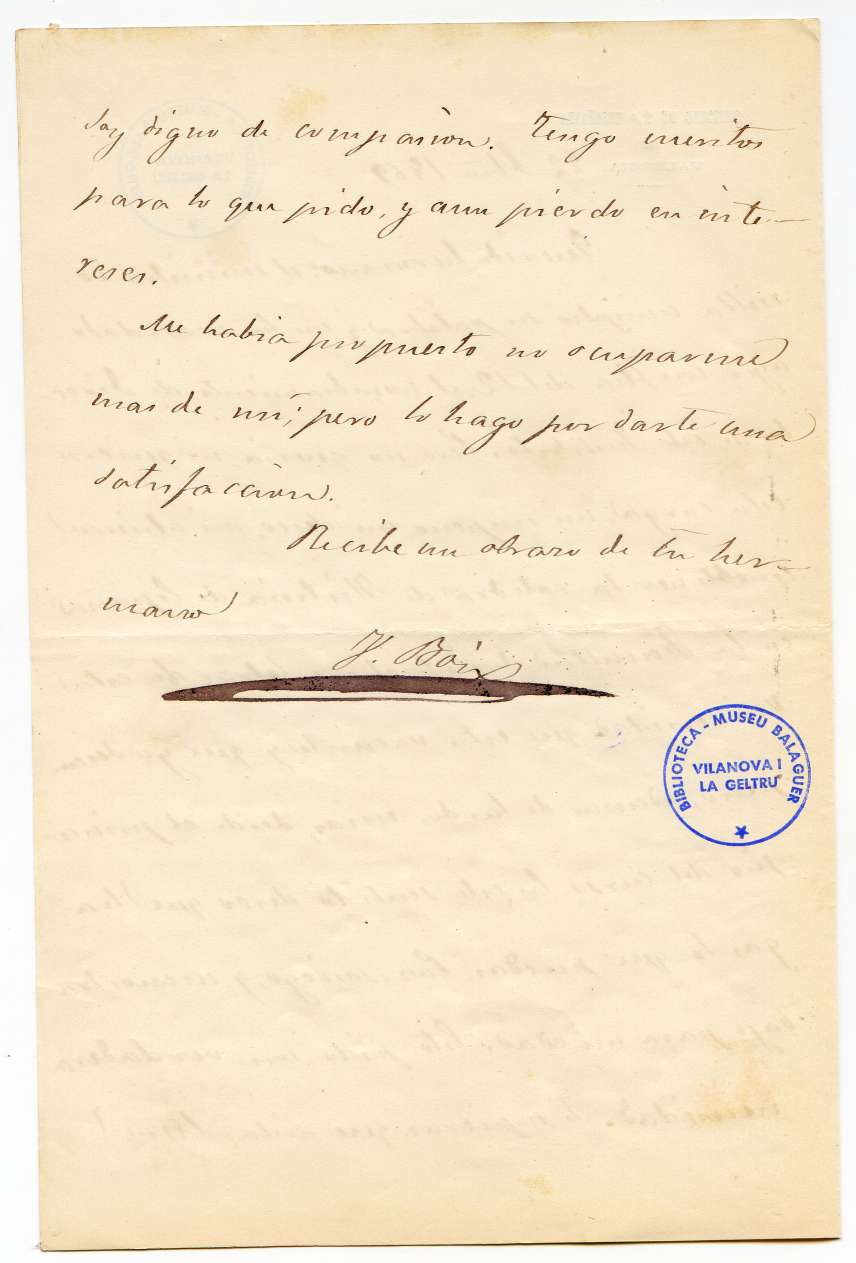 soy digno de compasion. Tengo meritos
para lo que pido, y aun pierdo en inte-
reses.
Me habia propuesto no ocuparme
mas de mi; pero lo hago por darte una
satisfaccion.
Recibe un abrazo de tu her-
mano
V. Boix
BIBLIOTECA - MUSEU BALAGUER
VILANOVA I
LA GELTRÚ